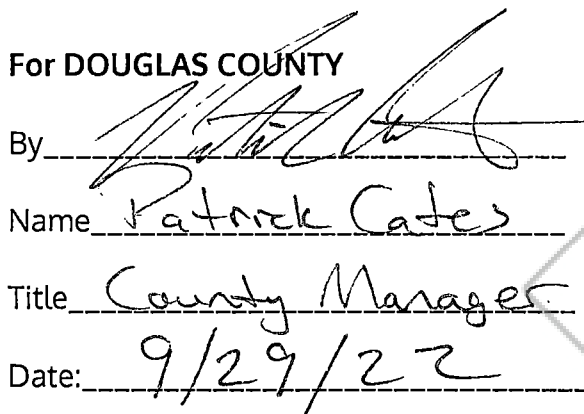 For DOUGLAS COUNTY
By
Name Patrick Cates
Title County Manager
Date: 9/29/22